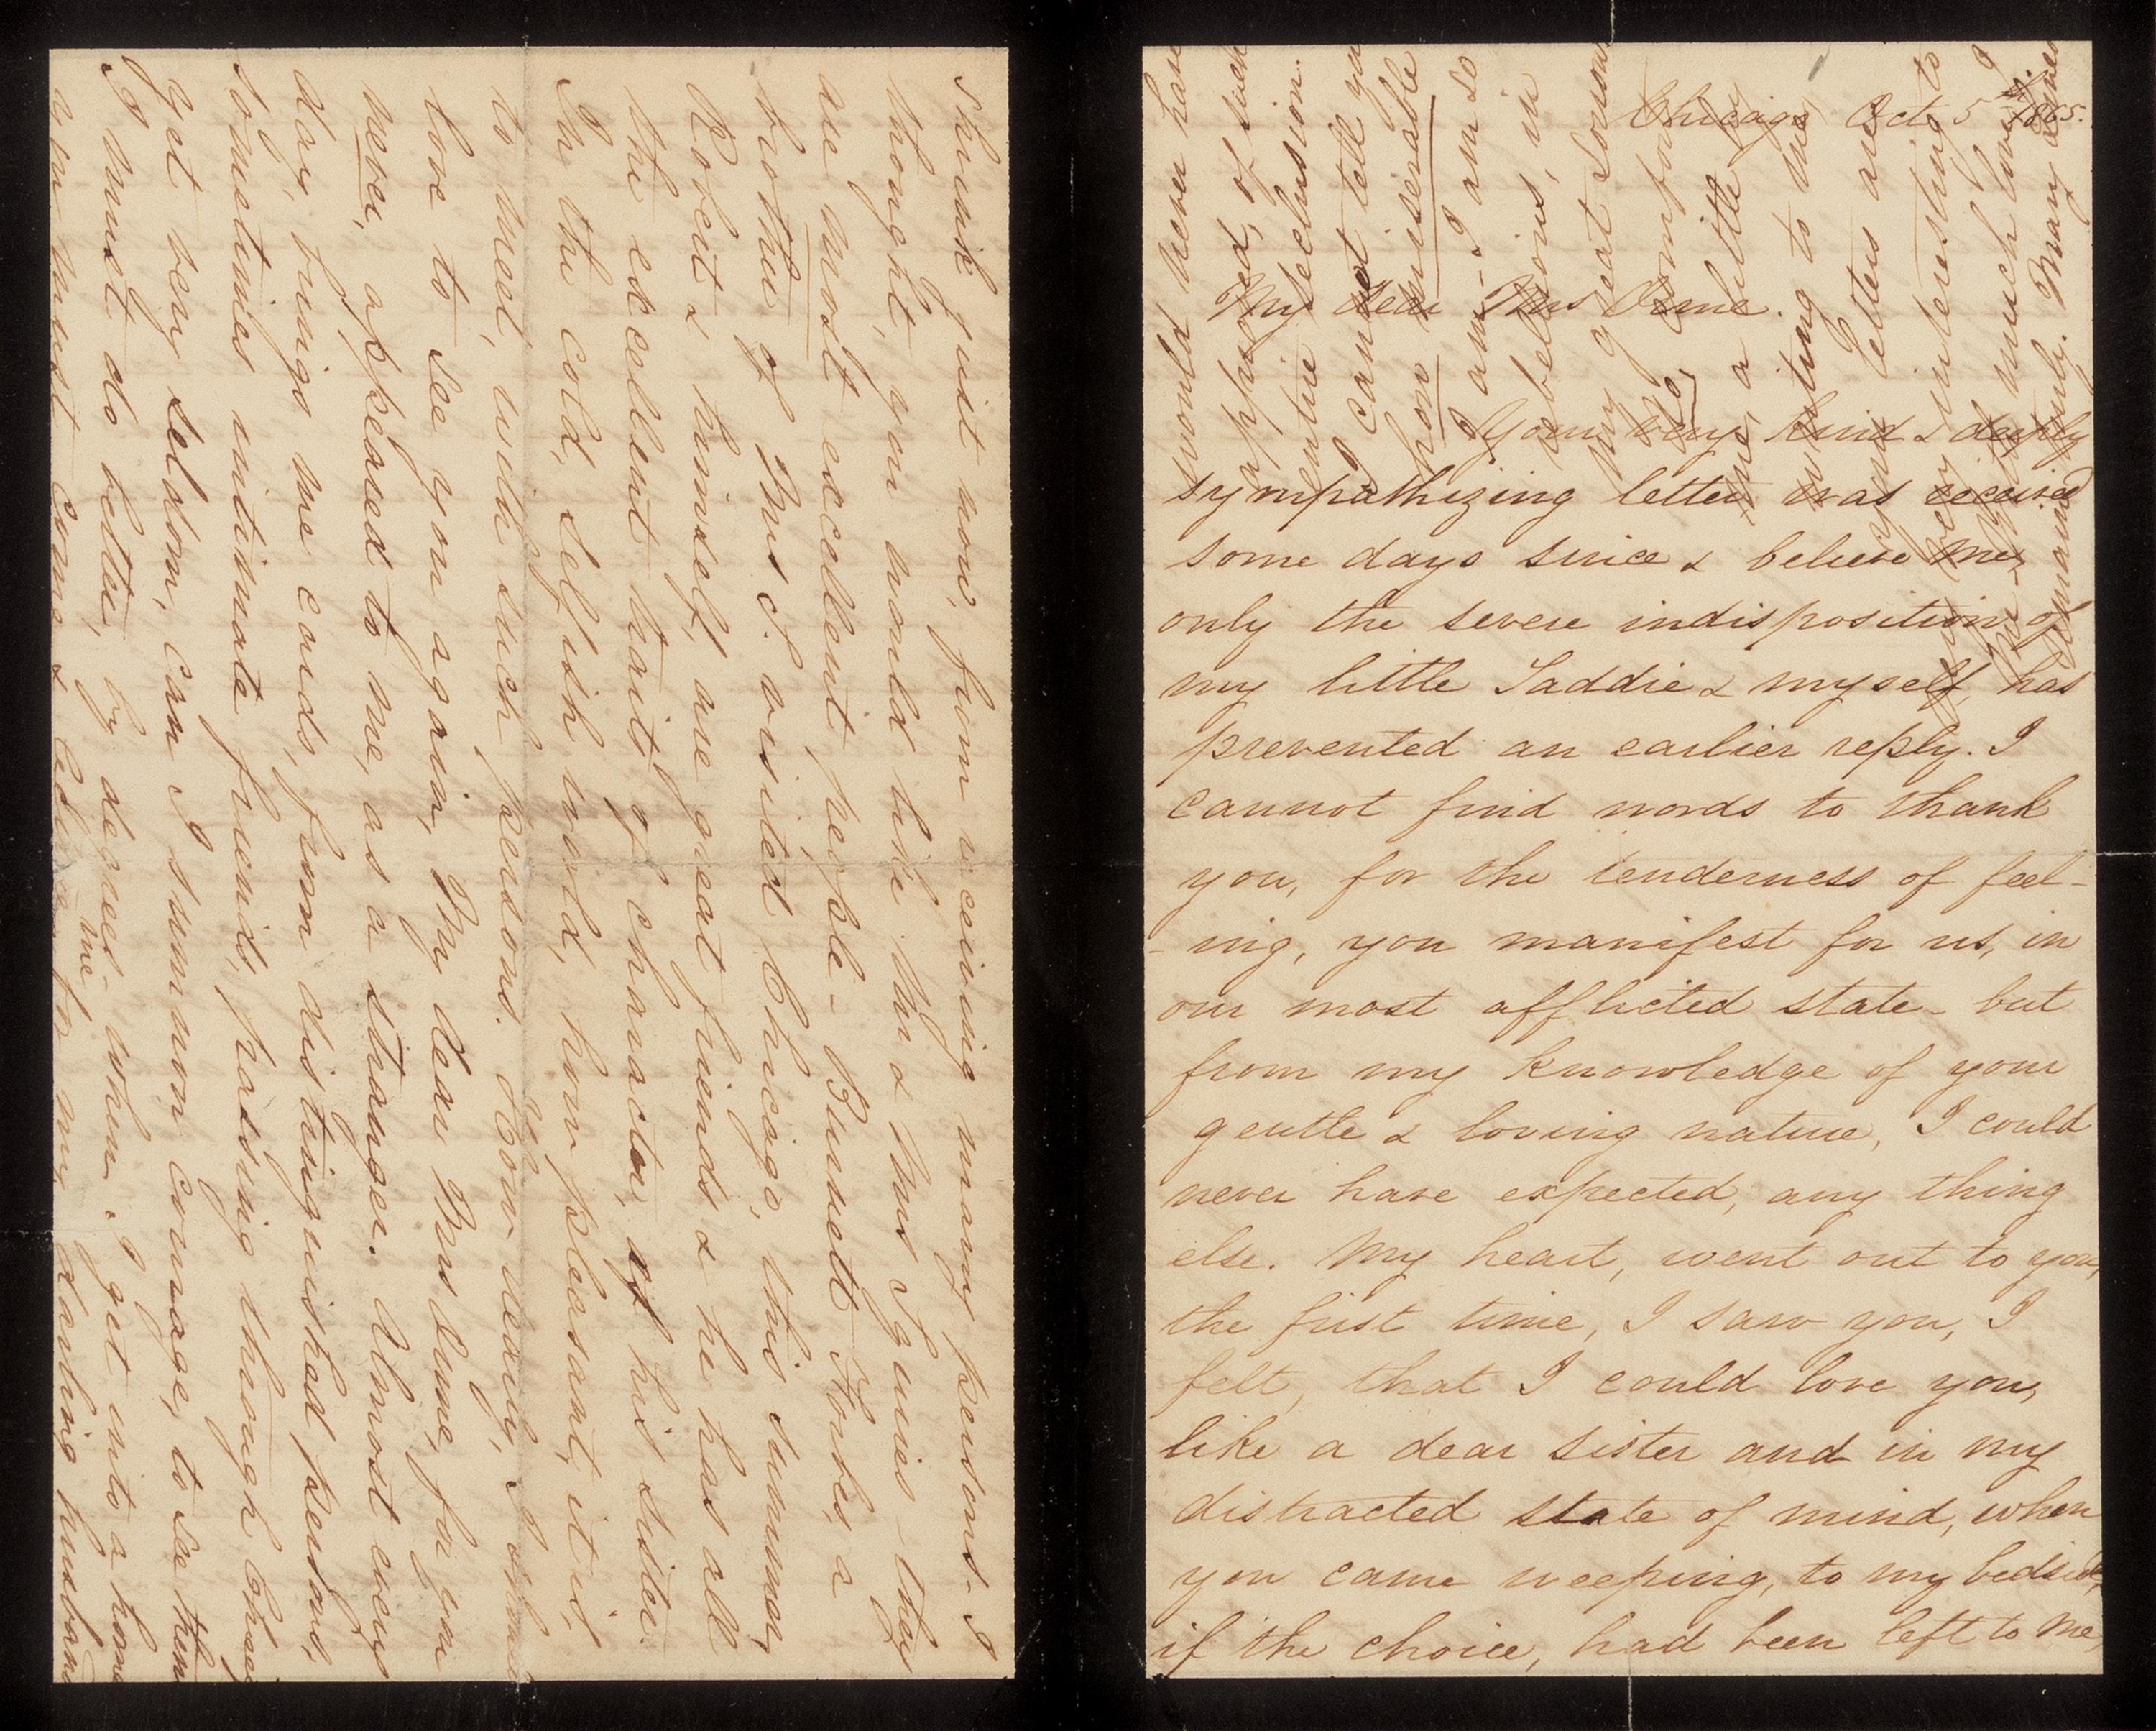 Chicago Oct 5th 1865.
My dear Mrs Orne.
Your very kind & deeply
sympathizing letter was received
some days since & believe me,
only the severe indisposition of
my little Taddie & myself, has
prevented an earlier reply. I
cannot find words to thank
you, for the tenderness of feel-
-ing, you manifest for us, in
our most afflicted state - but
from my knowledge of your
gentle & loving nature, I could
never have expected, any thing
else. My heart, went out to you,
the first time, I saw you, I
felt, that I could love you,
like a dear sister and in my
distracted state of mind, when
you came weeping, to my bedside,
if the choice, had been left to me,
would never have
approved, of such
entire seclusion.
I cannot tell you
how miserable
I am - I am so
rebellious, in
my heart
comfort
me, a little by
writing to me
your letters are
very interesting to
me - With much love I
remain truly. Mary
shrink just now, from receiving many persons - I
thought, you would like Mr & Mrs Squires they
are most excellent, people - Bennett Forbes, a
brother of Mrs S. visited Chicago, this summer,
Robert & himself, are great friends & he has all
the excellent traits of character, of his sister.
In the cold, selfish world, how pleasant, it is,
to meet, with such persons. How dearly, I should
love to see you again, My dear Mrs Orne, for you
never, appeared to me, as a stranger. Almost every
day, brings me cards, from distinguished persons,
sometimes intimate friends, passing through Chicago
yet very seldom, can I summon courage, to see them
I must do better, by degrees - when I get into a home
you must come & see me for my darling husband